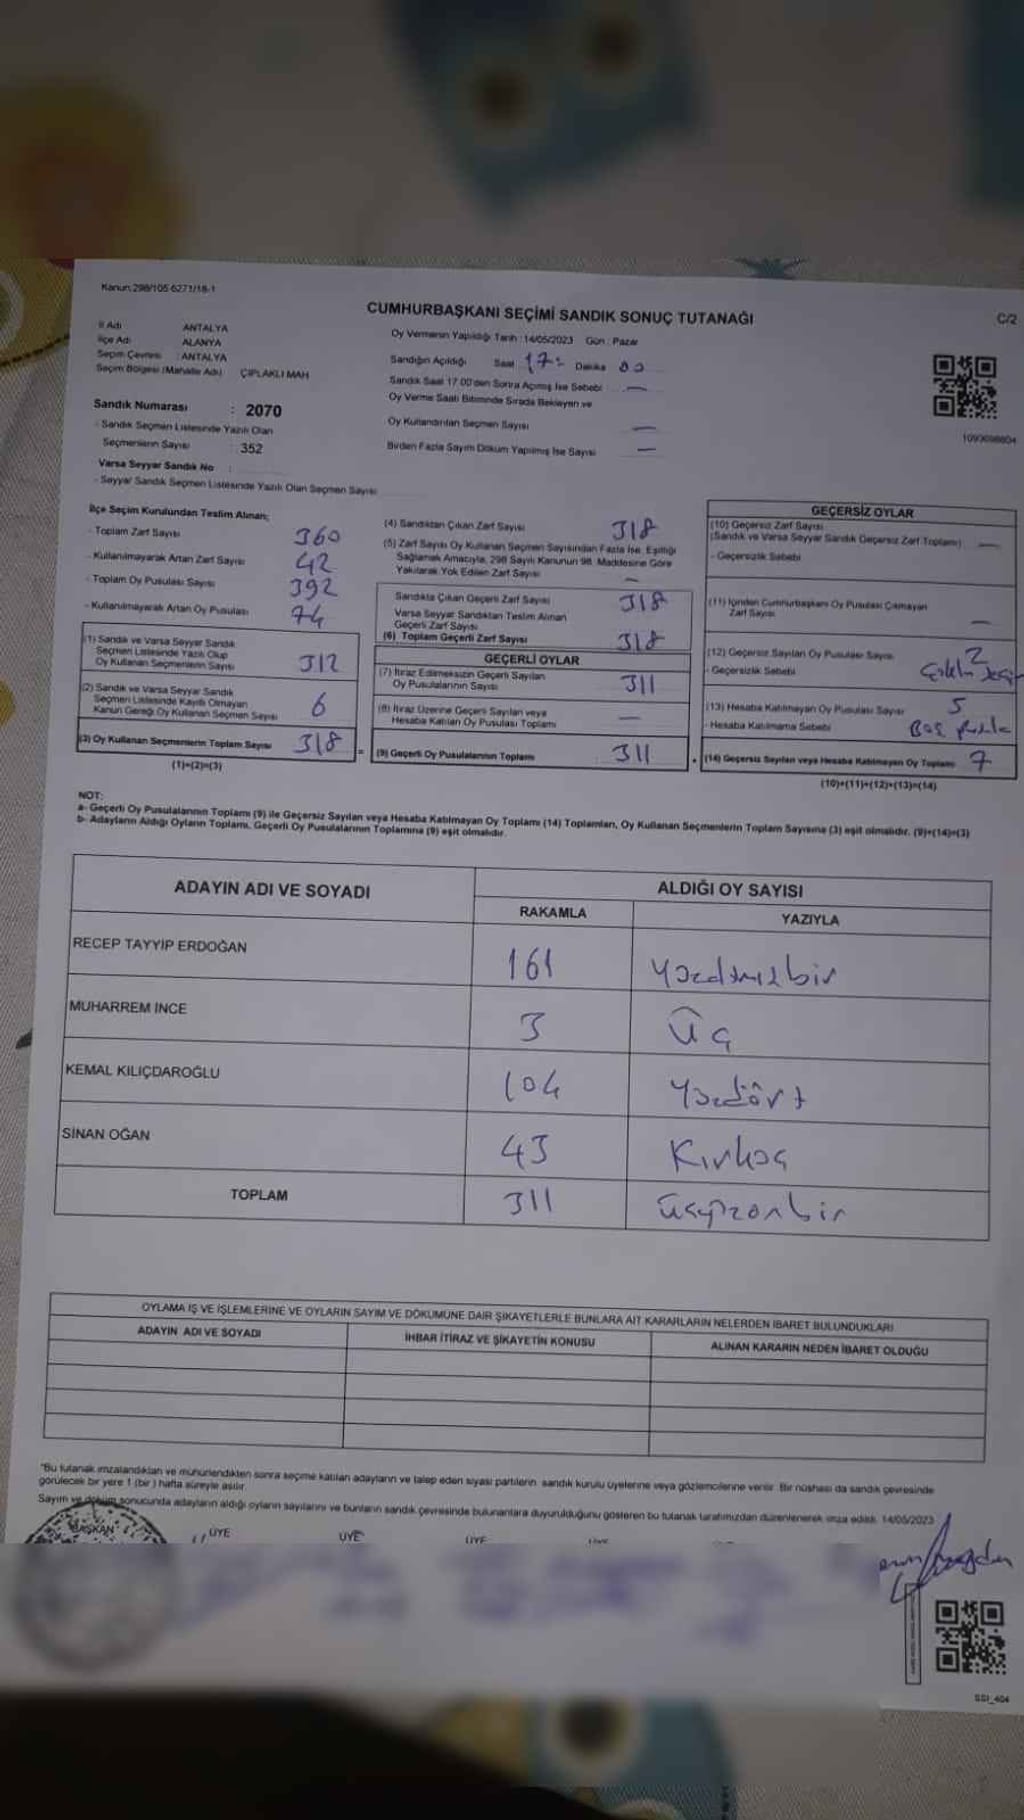 Kanun 298/105 6271/18-1
CUMHURBAŞKANI SEÇİMİ SANDIK SONUÇ TUTANAĞI
C/2
İl Adı ANTALYA
İlçe Adı ALANYA
Seçim Çevresi : ANTALYA
Seçim Bölgesi (Mahalle Adı) ÇIPLAKLI MAH
Sandık Numarası : 2070
- Sandık Seçmen Listesinde Yazılı Olan
Seçmenlerin Sayısı : 352
Varsa Seyyar Sandık No :
- Seyyar Sandık Seçmen Listesinde Yazılı Olan Seçmen Sayısı
Oy Vermenin Yapıldığı Tarih : 14/05/2023 Gün : Pazar
Sandığın Açıldığı Saat 17: Dakika 00
Sandık Saat 17.00'den Sonra Açılmış İse Sebebi —
Oy Verme Saati Bitiminde Sırada Bekleyen ve
Oy Kullandırılan Seçmen Sayısı —
Birden Fazla Sayım Döküm Yapılmış İse Sayısı —
İlçe Seçim Kurulundan Teslim Alınan;
- Toplam Zarf Sayısı 360
- Kullanılmayarak Artan Zarf Sayısı 42
- Toplam Oy Pusulası Sayısı 392
- Kullanılmayarak Artan Oy Pusulası 74
(1) Sandık ve Varsa Seyyar Sandık
Seçmen Listesinde Yazılı Olup
Oy Kullanan Seçmenlerin Sayısı 312
(2) Sandık ve Varsa Seyyar Sandık
Seçmen Listesinde Kayıtlı Olmayan
Kanun Gereği Oy Kullanan Seçmen Sayısı 6
(3) Oy Kullanan Seçmenlerin Toplam Sayısı 318 =
(1)+(2)=(3)
(4) Sandıktan Çıkan Zarf Sayısı 318
(5) Zarf Sayısı Oy Kullanan Seçmen Sayısından Fazla İse, Eşitliği
Sağlamak Amacıyla, 298 Sayılı Kanunun 98. Maddesine Göre
Yakılarak Yok Edilen Zarf Sayısı —
Sandıkta Çıkan Geçerli Zarf Sayısı 318
Varsa Seyyar Sandıktan Teslim Alınan
Geçerli Zarf Sayısı
(6) Toplam Geçerli Zarf Sayısı 318
GEÇERLİ OYLAR
(7) İtiraz Edilmeksizin Geçerli Sayılan
Oy Pusulalarının Sayısı 311
(8) İtiraz Üzerine Geçerli Sayılan veya
Hesaba Katılan Oy Pusulası Toplamı —
(9) Geçerli Oy Pusulalarının Toplamı 311
GEÇERSİZ OYLAR
(10) Geçersiz Zarf Sayısı
(Sandık ve Varsa Seyyar Sandık Geçersiz Zarf Toplamı) —
- Geçersizlik Sebebi
(11) İçinden Cumhurbaşkanı Oy Pusulası Çıkmayan
Zarf Sayısı —
(12) Geçersiz Sayılan Oy Pusulası Sayısı 2
- Geçersizlik Sebebi
(13) Hesaba Katılmayan Oy Pusulası Sayısı 5
- Hesaba Katılmama Sebebi Boş pusula
(14) Geçersiz Sayılan veya Hesaba Katılmayan Oy Toplamı 7
(10)+(11)+(12)+(13)=(14)
NOT:
a- Geçerli Oy Pusulalarının Toplamı (9) ile Geçersiz Sayılan veya Hesaba Katılmayan Oy Toplamı (14) Toplamları, Oy Kullanan Seçmenlerin Toplam Sayısına (3) eşit olmalıdır. (9)+(14)=(3)
b- Adayların Aldığı Oyların Toplamı, Geçerli Oy Pusulalarının Toplamına (9) eşit olmalıdır.
ADAYIN ADI VE SOYADI
ALDIĞI OY SAYISI
RAKAMLA YAZIYLA
RECEP TAYYİP ERDOĞAN 161 Yüzatmışbir
MUHARREM İNCE 3 Üç
KEMAL KILIÇDAROĞLU 104 Yüzdört
SİNAN OĞAN 43 Kırküç
TOPLAM 311 Üçyüzonbir
OYLAMA İŞ VE İŞLEMLERİNE VE OYLARIN SAYIM VE DÖKÜMÜNE DAİR ŞİKAYETLERLE BUNLARA AİT KARARLARIN NELERDEN İBARET BULUNDUKLARI
ADAYIN ADI VE SOYADI İHBAR İTİRAZ VE ŞİKAYETİN KONUSU ALINAN KARARIN NEDEN İBARET OLDUĞU
"Bu tutanak imzalandıktan ve mühürlendikten sonra seçime katılan adayların ve talep eden siyasi partilerin sandık kurulu üyelerine veya gözlemcilerine verilir. Bir nüshası da sandık çevresinde
görülecek bir yere 1 (bir) hafta süreyle asılır.
Sayım ve döküm sonucunda adayların aldığı oyların sayılarını ve bunların sandık çevresinde bulunanlara duyurulduğunu gösteren bu tutanak tarafımızdan düzenlenerek imza edildi. 14/05/2023
BAŞKAN ÜYE ÜYE ÜYE
SSI_404